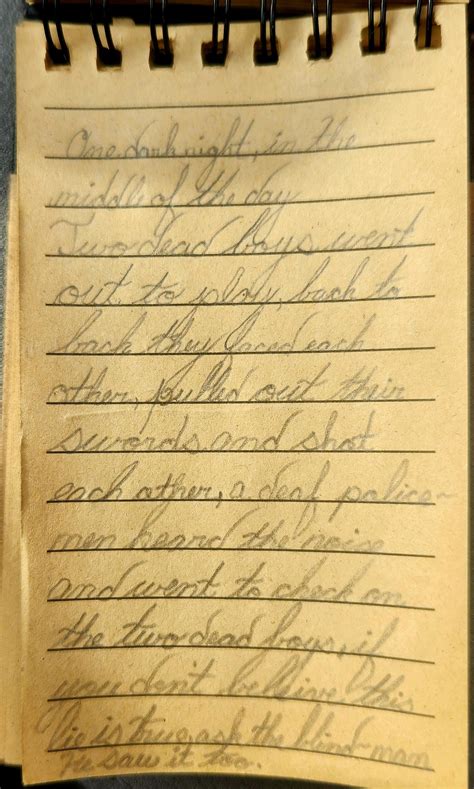 One dark night, in the
middle of the day
Two dead boys went
out to play, back to
back they faced each
other, pulled out their
swords and shot
each other, a deaf police-
men heard the noise
and went to check on
the two dead boys, if
you don't beleive this
lie is true, ask the blind man
He saw it too.